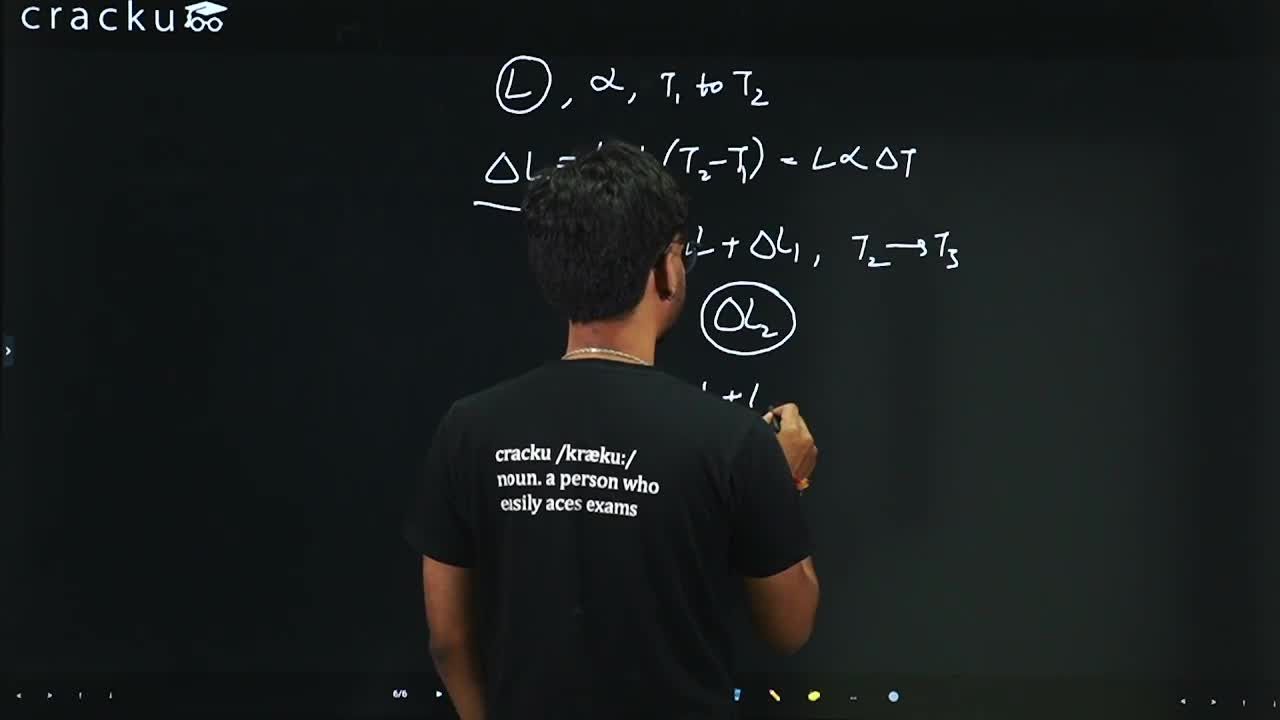 cracku
L, α, T₁ to T₂
ΔL = (T₂-T₁) = LαΔT
L + ΔL₁, T₂ → T₃
ΔL₂
+ L
cracku /kræku:/
noun. a person who
easily aces exams
6/6